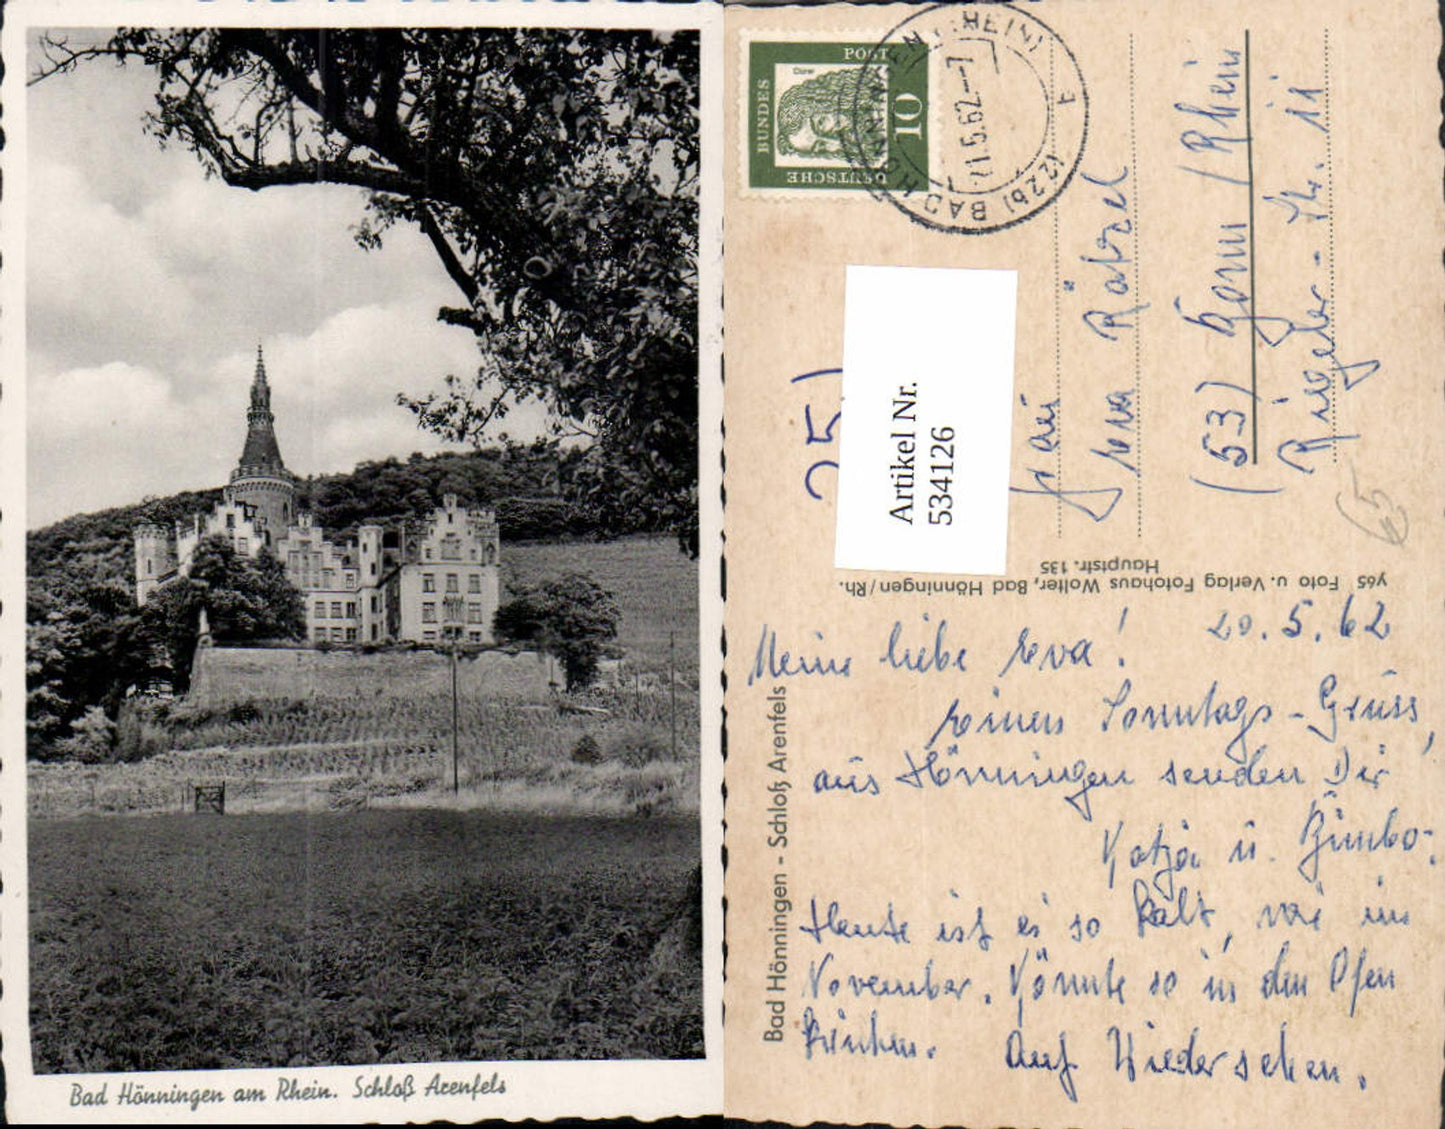 Bad Hönningen am Rhein. Schloß Arenfels
DEUTSCHE
BUNDES
POST
Dürer
10
(22b) BAD HÖNNINGEN (RHEIN)
21.5.62.--7
t
25)
Artikel Nr.
534126
Frau
Eva Rätzel
(53) Bonn / Rhein
Rieger-Str. 11
65
y65 Foto u. Verlag Fotohaus Wolter, Bad Hönningen/Rh.
Hauptstr. 135
Bad Hönningen - Schloß Arenfels
20.5.62
Meine liebe Eva!
Einen Sonntags-Grüss,
aus Hönningen senden Dir
Katja u. Bimbo.
Heute ist es so kalt, wie im
November. Könnte so in den Ofen
kriechen. Auf Wiedersehen.